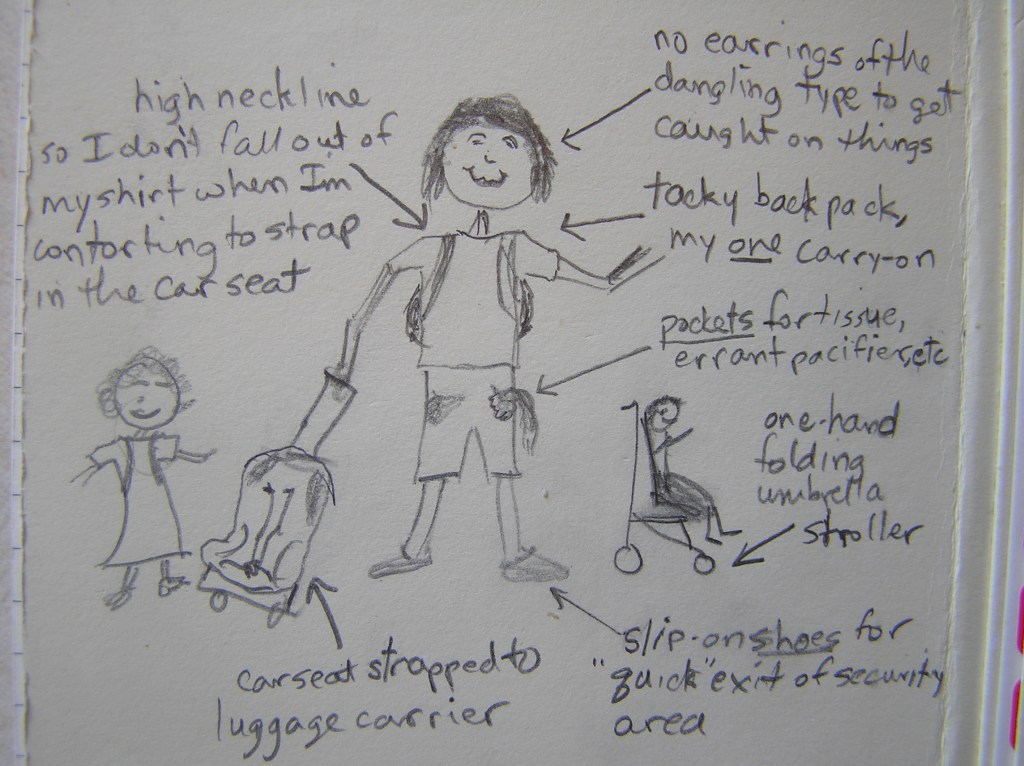 no earrings of the
dangling type to get
caught on things
high neckline
so I don't fall out of
my shirt when I'm
contorting to strap
in the car seat
tacky backpack,
my one carry-on
pockets for tissue,
errant pacifier, etc
one-hand
folding
umbrella
stroller
slip-on shoes for
"quick" exit of security
area
carseat strapped to
luggage carrier